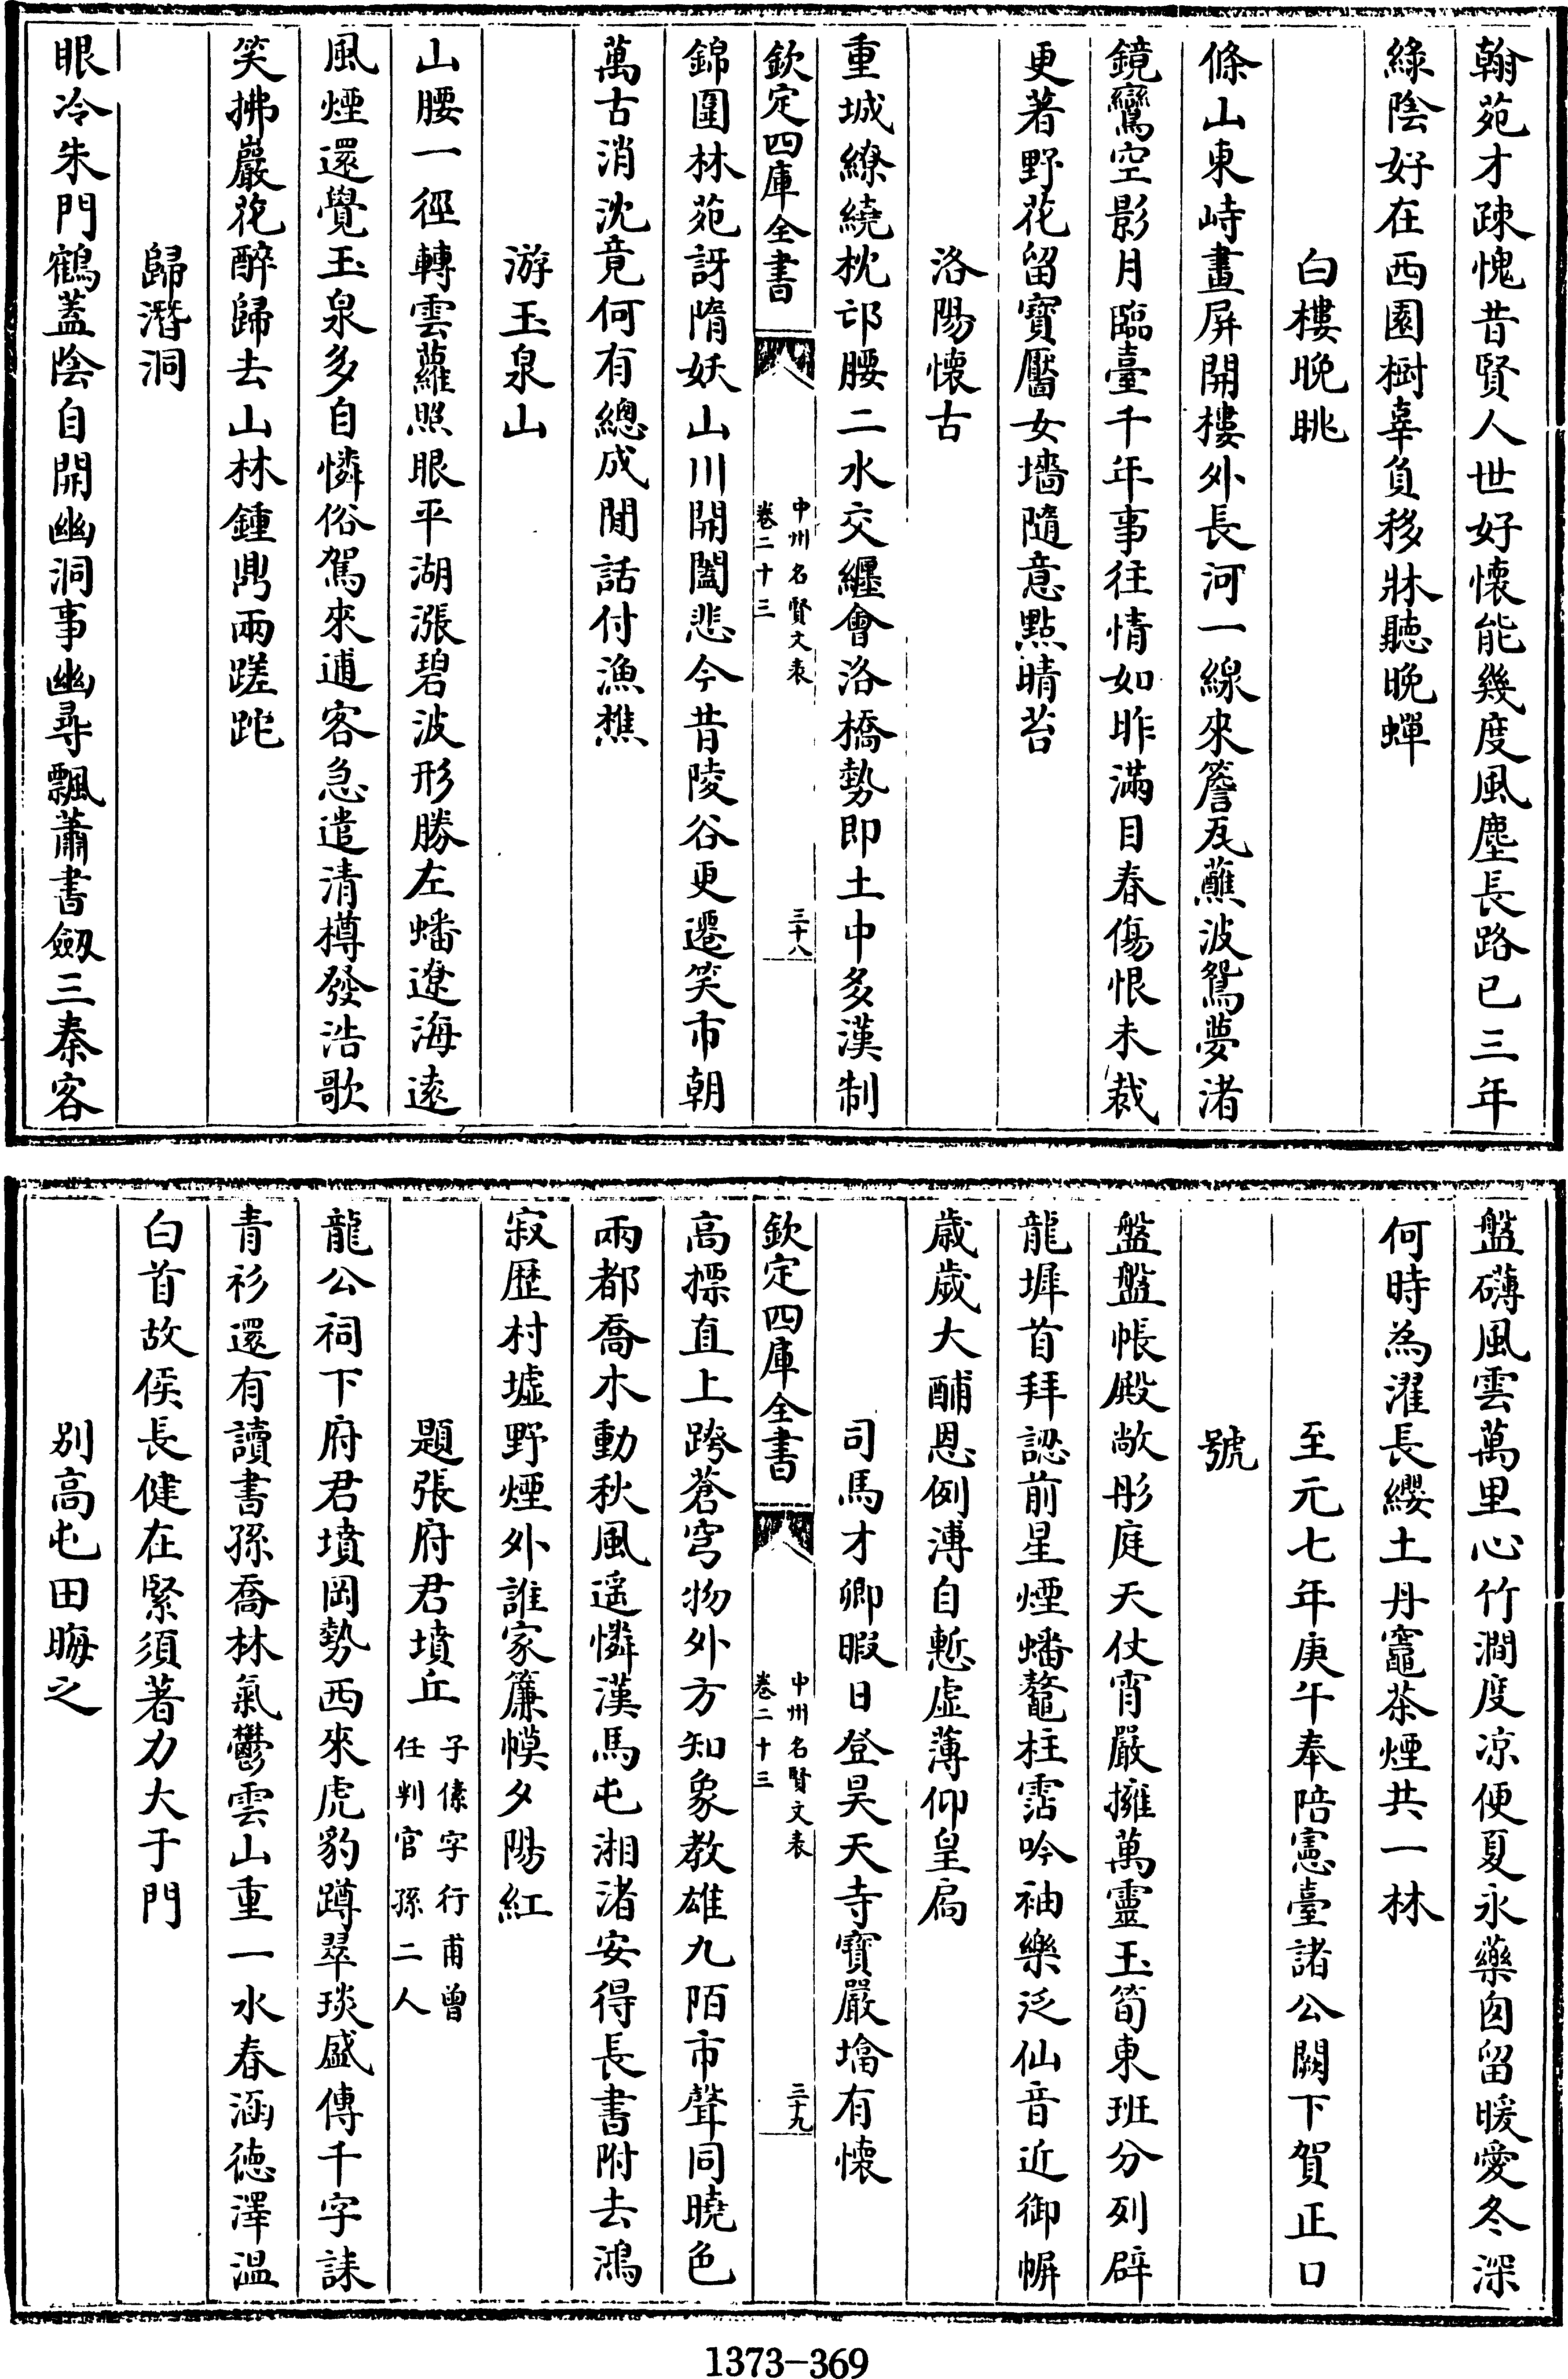 翰苑才疎愧昔賢人世好懷能幾度風塵長路已三年
綠陰好在西園樹辜負移牀聽晚蟬
白樓晚眺
條山東峙畫屏開樓外長河一線來簷瓦蘸波鴛夢渚
鏡鸞空影月臨臺千年事往情如昨滿目春傷恨未裁
更著野花留寶靨女墻隨意點晴苔
洛陽懷古
重城繚繞枕邙腰二水交纏會洛橋勢即土中多漢制
欽定四庫全書
中州名賢文表
卷二十三
三十八
錦圍林苑訝隋妖山川開闔悲今昔陵谷更遷笑市朝
萬古消沈竟何有總成閒話付漁樵
游玉泉山
山腰一徑轉雲蘿照眼平湖漲碧波形勝左蟠遼海遠
風煙還覺玉泉多自憐俗駕來逋客急遣清樽發浩歌
笑拂巖花醉歸去山林鍾鼎兩蹉跎
歸潛洞
眼冷朱門鶴蓋陰自開幽洞事幽尋飄蕭書劔三秦客
盤礴風雲萬里心竹澗度凉便夏永藥囪留暖愛冬深
何時為濯長纓土丹竈茶煙共一林
至元七年庚午奉陪憲臺諸公闕下賀正口
號
盤盤帳殿敞彤庭天仗宵嚴擁萬靈玉筍東班分列辟
龍墀首拜認前星煙蟠鼇柱霑吟袖樂泛仙音近御帡
歲歲大酺恩例溥自慙虛薄仰皇扃
司馬才卿暇日登昊天寺寶嚴㙮有懷
欽定四庫全書
中州名賢文表
卷二十三
三十九
高標直上跨蒼穹物外方知象教雄九陌市聲同曉色
兩都喬木動秋風遥憐漢馬屯湘渚安得長書附去鴻
寂歷村墟野煙外誰家簾幙夕陽紅
題張府君墳丘
子傃字行甫曾
任判官孫二人
龍公祠下府君墳岡勢西來虎豹蹲翠琰盛傳千字誄
青衫還有讀書孫喬林氣鬱雲山重一水春涵德澤温
白首故侯長健在緊須著力大于門
別高屯田晦之
1373-369